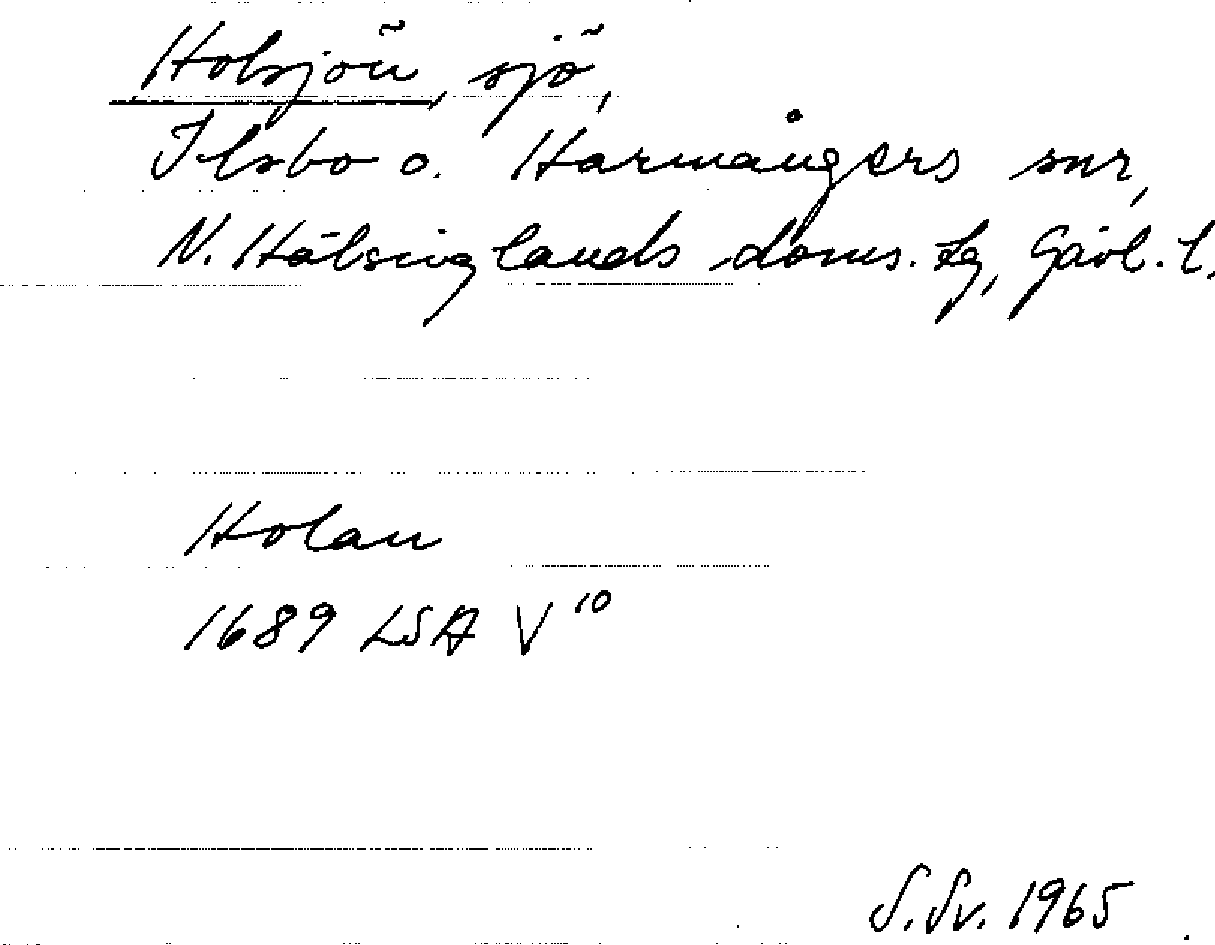 Holsjön, sjö,
Ilsbo o. Harmångers snr,
N. Hälsinglands doms. tg, Gävl. l.
Holan
1689 LSA V 10
S.Sv. 1965